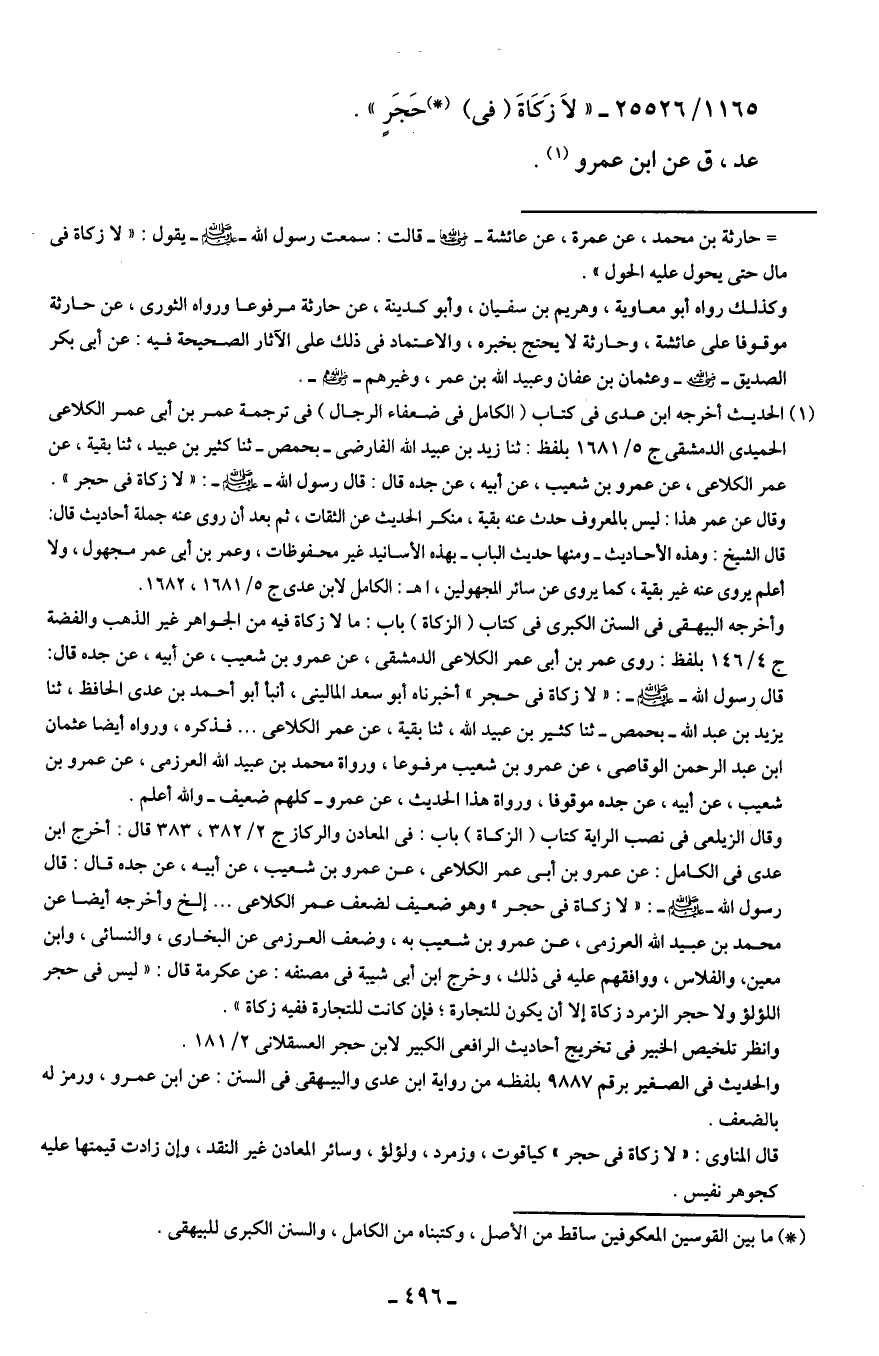 ١١٦٥/ ٢٥٥٢٦ ـ « لاَ زَكَاةَ ( فى) (*)حَجَرٍ » .
عد ، ق عن ابن عمرو (١) .
= حارثة بن محمد ، عن عمرة ، عن عائشة ـ رضي الله عنها ـ قالت : سمعت رسول الله ـ ﷺ ـ يقول : « لا زكاة فى
مال حتى يحول عليه الحول » .
وكذلك رواه أبو معاوية ، وهريم بن سفيان ، وأبو كدينة ، عن حارثة مرفوعا ورواه الثورى ، عن حارثة
موقوفا على عائشة ، وحارثة لا يحتج بخبره ، والاعتماد فى ذلك على الآثار الصحيحة فيه : عن أبى بكر
الصديق ـ رضي الله عنه ـ وعثمان بن عفان وعبيد الله بن عمر ، وغيرهم ـ رضي الله عنهم ـ .
(١) الحديث أخرجه ابن عدى فى كتاب ( الكامل فى ضعفاء الرجال ) فى ترجمة عمر بن أبى عمر الكلاعى
الحميدى الدمشقى ج ٥/ ١٦٨١ بلفظ : ثنا زيد بن عبيد الله الفارضى ـ بحمص ـ ثنا كثير بن عبيد ، ثنا بقية ، عن
عمر الكلاعى ، عن عمرو بن شعيب ، عن أبيه ، عن جده قال : قال رسول الله ـ ﷺ ـ : « لا زكاة فى حجر » .
وقال عن عمر هذا : ليس بالمعروف حدث عنه بقية ، منكر الحديث عن الثقات ، ثم بعد أن روى عنه جملة أحاديث قال:
قال الشيخ : وهذه الأحاديث ـ ومنها حديث الباب ـ بهذه الأسانيد غير محفوظات ، وعمر بن أبى عمر مجهول ، ولا
أعلم يروى عنه غير بقية ، كما يروى عن سائر المجهولين ، ا هـ : الكامل لابن عدى ج ٥/ ١٦٨١ ، ١٦٨٢.
وأخرجه البيهقى فى السنن الكبرى فى كتاب ( الزكاة ) باب : ما لا زكاة فيه من الجواهر غير الذهب والفضة
ج ٤/ ١٤٦ بلفظ : روى عمر بن أبى عمر الكلاعى الدمشقى ، عن عمرو بن شعيب ، عن أبيه ، عن جده قال:
قال رسول الله ـ ﷺ ـ : « لا زكاة فى حجر » أخبرناه أبو سعد المالينى ، أنبأ أبو أحمد بن عدى الحافظ ، ثنا
يزيد بن عبد الله ـ بحمص ـ ثنا كثير بن عبيد الله ، ثنا بقية ، عن عمر الكلاعى ... فذكره ، ورواه أيضا عثمان
ابن عبد الرحمن الوقاصى ، عن عمرو بن شعيب مرفوعا ، ورواة محمد بن عبيد الله العرزمى ، عن عمرو بن
شعيب ، عن أبيه ، عن جده موقوفا ، ورواة هذا الحديث ، عن عمرو ـ كلهم ضعيف ـ والله أعلم .
وقال الزيلعى فى نصب الراية كتاب ( الزكاة ) باب : فى المعادن والركاز ج ٢/ ٣٨٢ ، ٣٨٣ قال : أخرج ابن
عدى فى الكامل : عن عمرو بن أبى عمر الكلاعى ، عن عمرو بن شعيب ، عن أبيه ، عن جده قال : قال
رسول الله ـ ﷺ ـ : « لا زكاة فى حجر » وهو ضعيف لضعف عمر الكلاعى ... إلخ وأخرجه أيضا عن
محمد بن عبيد الله العرزمى ، عن عمرو بن شعيب به ، وضعف العرزمى عن البخارى ، والنسائى ، وابن
معين، والفلاس ، ووافقهم عليه فى ذلك ، وخرج ابن أبى شيبة فى مصنفه : عن عكرمة قال : « ليس فى حجر
اللؤلؤ ولا حجر الزمرد زكاة إلا أن يكون للتجارة ؛ فإن كانت للتجارة ففيه زكاة » .
وانظر تلخيص الخبير فى تخريج أحاديث الرافعى الكبير لابن حجر العسقلانى ٢/ ١٨١ .
والحديث فى الصغير برقم ٩٨٨٧ بلفظه من رواية ابن عدى والبيهقى فى السنن : عن ابن عمرو ، ورمز له
بالضعف .
قال المناوى : « لا زكاة فى حجر » كياقوت ، وزمرد ، ولؤلؤ ، وسائر المعادن غير النقد ، وإن زادت قيمتها عليه
كجوهر نفيس .
(*) ما بين القوسين المعكوفين ساقط من الأصل ، وكتبناه من الكامل ، والسنن الكبرى للبيهقى .
ـ ٤٩٦ ـ